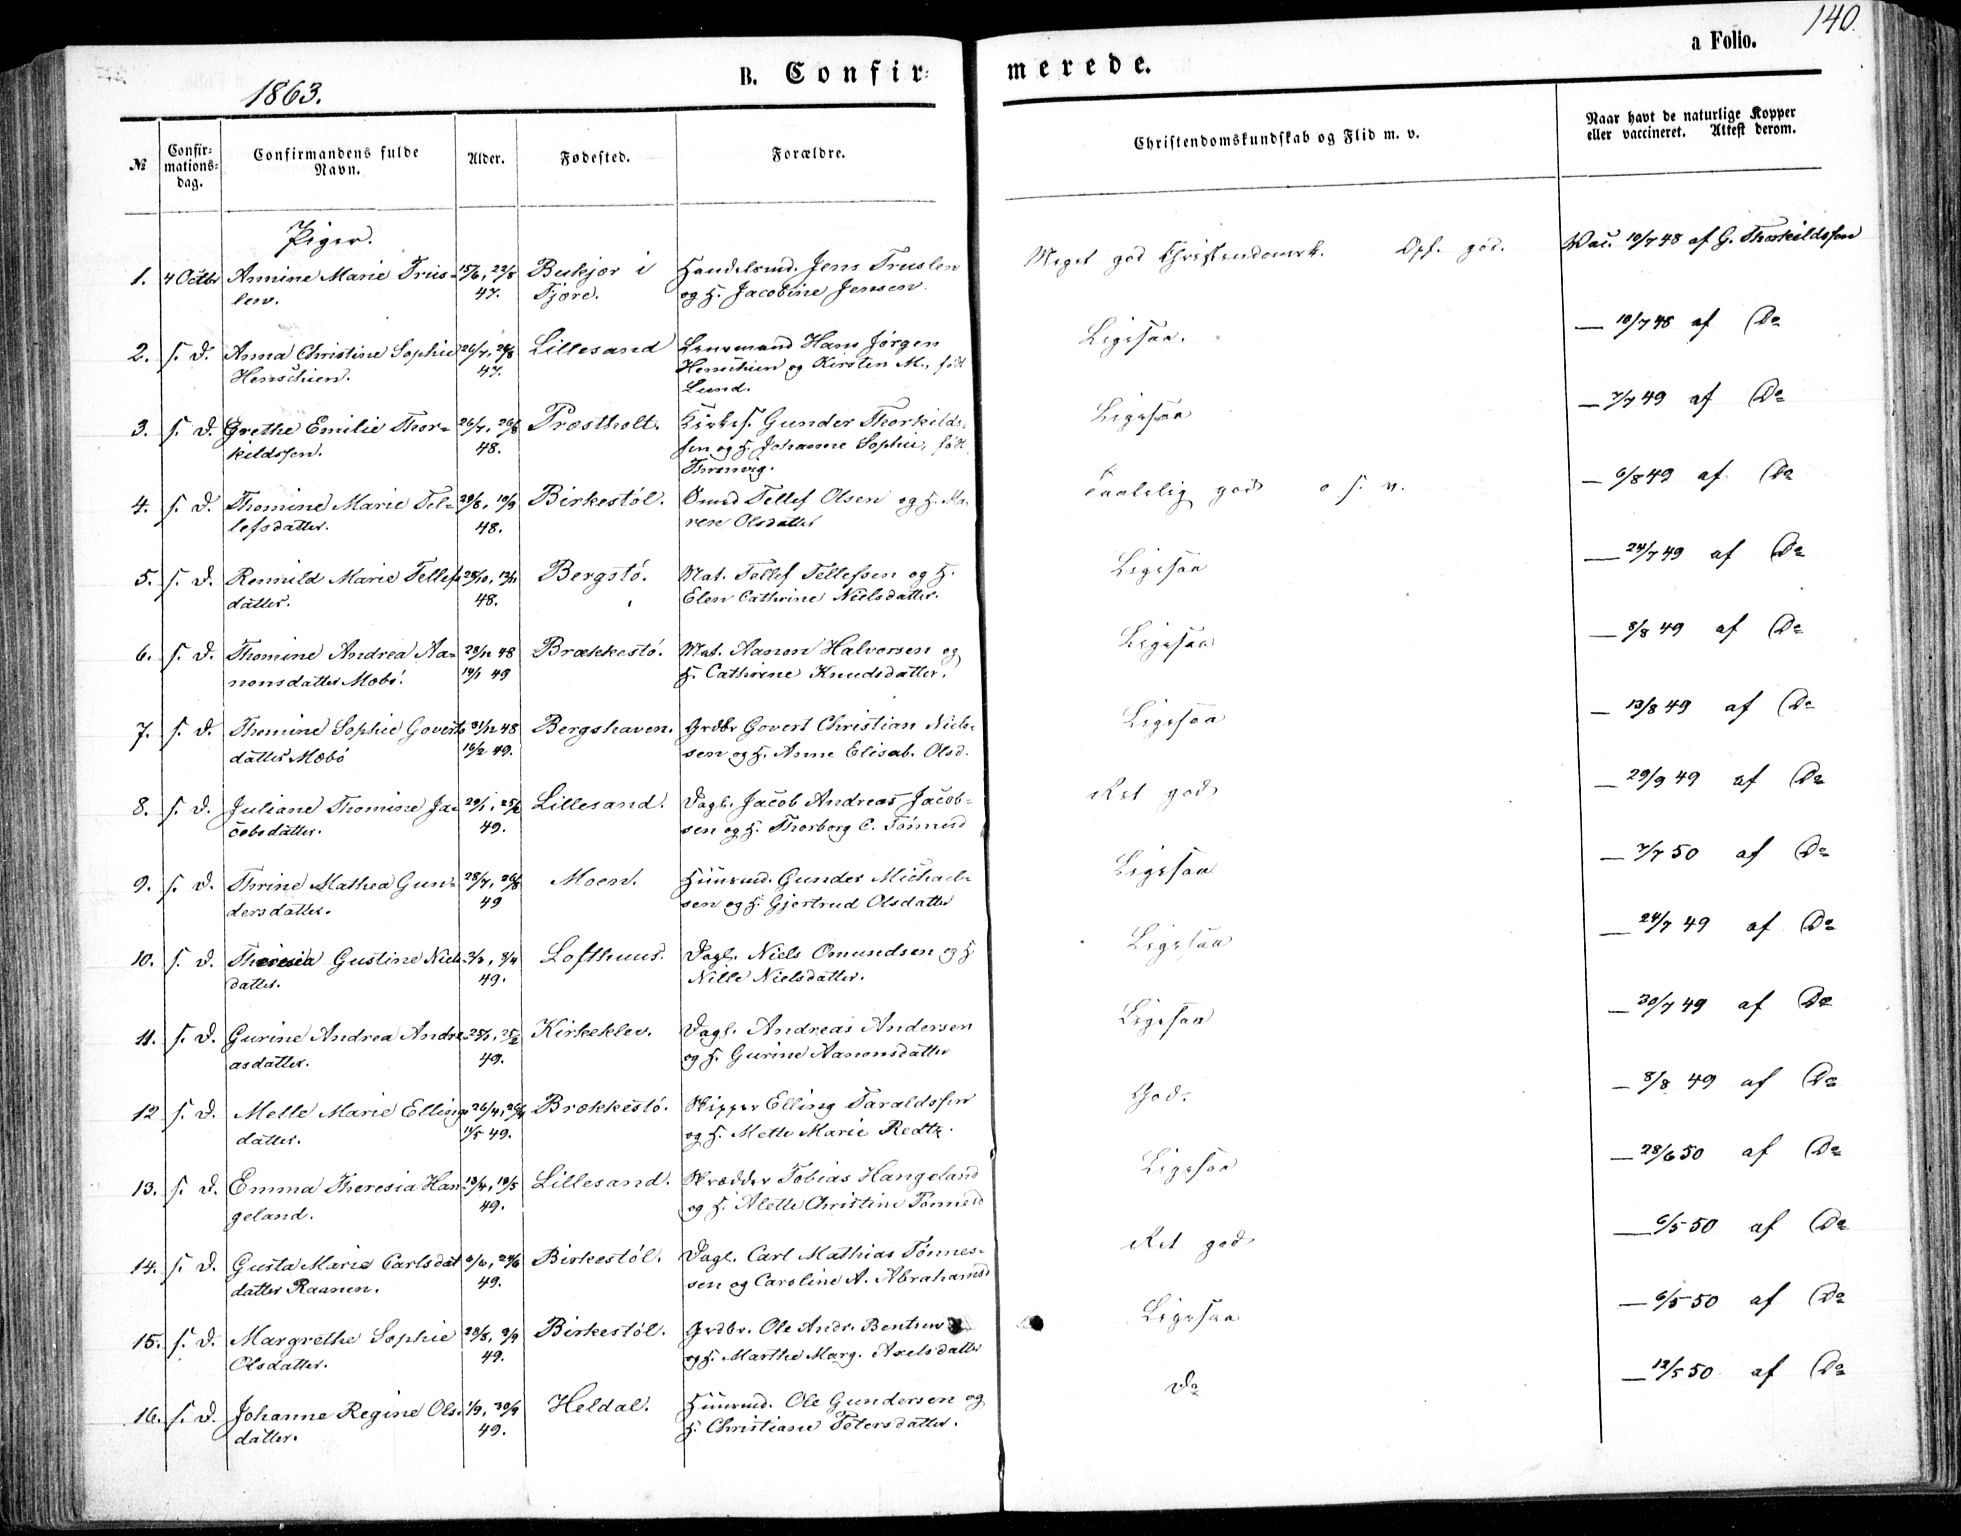 140.
a Folio.
B. Confir-
merede.
1863.
№
Confir-
mations-
dag.
Confirmandens fulde
Navn.
Alder.
Fødested.
Forældre.
Christendomskundskab og Flid m. v.
Naar havt de naturlige Kopper
eller vaccineret. Attest derom.
Piger.
1. 4 Octbr Annine Marie Trus- 15/6, 22/8 Bukjør i Handelsmd. Jens Truslen Meget god Christendomsk. Opf. god. Vac. 10/7 48 af G. Thorkildssen
len. 47. Fjøre. og H. Jacobine Jensen.
2. s. D. Anna Christine Sophie 26/7, 26/8 Lillesand Lensmand Hans Jørgen Ligesaa. — 10/7 48 af Do
Henschien. 47. Henschien og Kirsten M., født
Lund.
3. s. D. Grethe Emilie Thor- 26/7, 26/8 Præstholt. Kirkes. Gunder Thorkilds- Ligesaa — 7/7 49 af Do
kildssen. 48. sen og H. Johanne Sophie, født
Thronvig.
4. s. D. Thomine Marie Tel- 29/8, 10/9 Birkestøl. Ømd Tellef Olsen og H. Ma- Taalelig god o s. v. — 6/8 49 af Do
lefsdatter. 48. ren Olsdatter
5. s. D. Romild Marie Tellefs 28/10, 13/11 Bergstø. Mat. Tellef Tellefsen og H. Ligesaa — 24/7 49 af Do
datter. 48. Elen Cathrine Nielsdatter.
6. s. D. Thomine Andrea Aa- 29/12 48 Brækkestø. Mat. Aanon Halvorsen og Ligesaa — 8/8 49 af Do
nonsdatter Møbø. 14/1 49 H. Cathrine Knudsdatter.
7. s. D. Thomine Sophie Goverts 31/12 48 Bergshaven. Grdbr Govert Christian Niels- Ligesaa — 13/8 49 af Do
datter Møbø 16/2 49. sen og H. Anne Elisab. Olsd.
8. s. D. Juliane Thomine Ja- 29/1, 25/2 Lillesand. Dagl. Jacob Andreas Jacob- Ret god — 29/9 49 af Do
cobsdatter. 49. sen og H. Thorborg C. Tønnesd
9. s. D. Thrine Mathea Gun- 28/7, 26/8 Moen. Huusmd. Gunder Michael- Ligesaa — 7/7 50 af Do
dersdatter. 49 sen og H. Gjertrud Olsdatter
10. s. D. Theresia Gustine Niels 3/3, 9/4 Lofthuus. Dagl. Niels Omundsen og H Ligesaa — 24/7 49 af Do
datter. 49. Nille Nielsdatter.
11. s. D. Gurine Andrea Andre- 25/1, 25/2 Kirkeklev. Dagl. Andreas Andersen Ligesaa — 30/7 49 af Do
asdatter. 49. og H. Gurine Aanonsdatter
12 s. D. Mette Marie Ellings 26/4, Brækkestø. Skipper Elling Taraldssen God. — 8/8 49 af Do
datter. 17/5 49. og H. Mette Marie Redtz.
13. s. D. Emma Theresia Han- 13/4, 19/5 Lillesand. Skrædder Tobias Hangeland Ligesaa — 28/6 50 af Do
geland. 49. og H. Alette Christine Tønnesd
14. s. D. Gusta Marie Carlsdat 6/6, 24/6 Birkestøl. Dagl. Carl Mathias Tønnes- Ret god — 6/5 50 af Do
datter Raanen. 49. sen og Caroline A. Abrahamsd
15. s. D. Margrethe Sophie 29/8, 9/9 Birkestøl. Grdbr. Ole Andr. Bentsen Ligesaa — 6/5 50 af Do
Olsdatter. 49. og H. Marthe Marg. Axelsdatter
16. s. D. Johanne Regine Ols- 1/9, 30/9 Heldal. Huusmd. Ole Gundersen og Do — 12/5 50 af Do
datter. 49. H. Christiane Petersdatter.